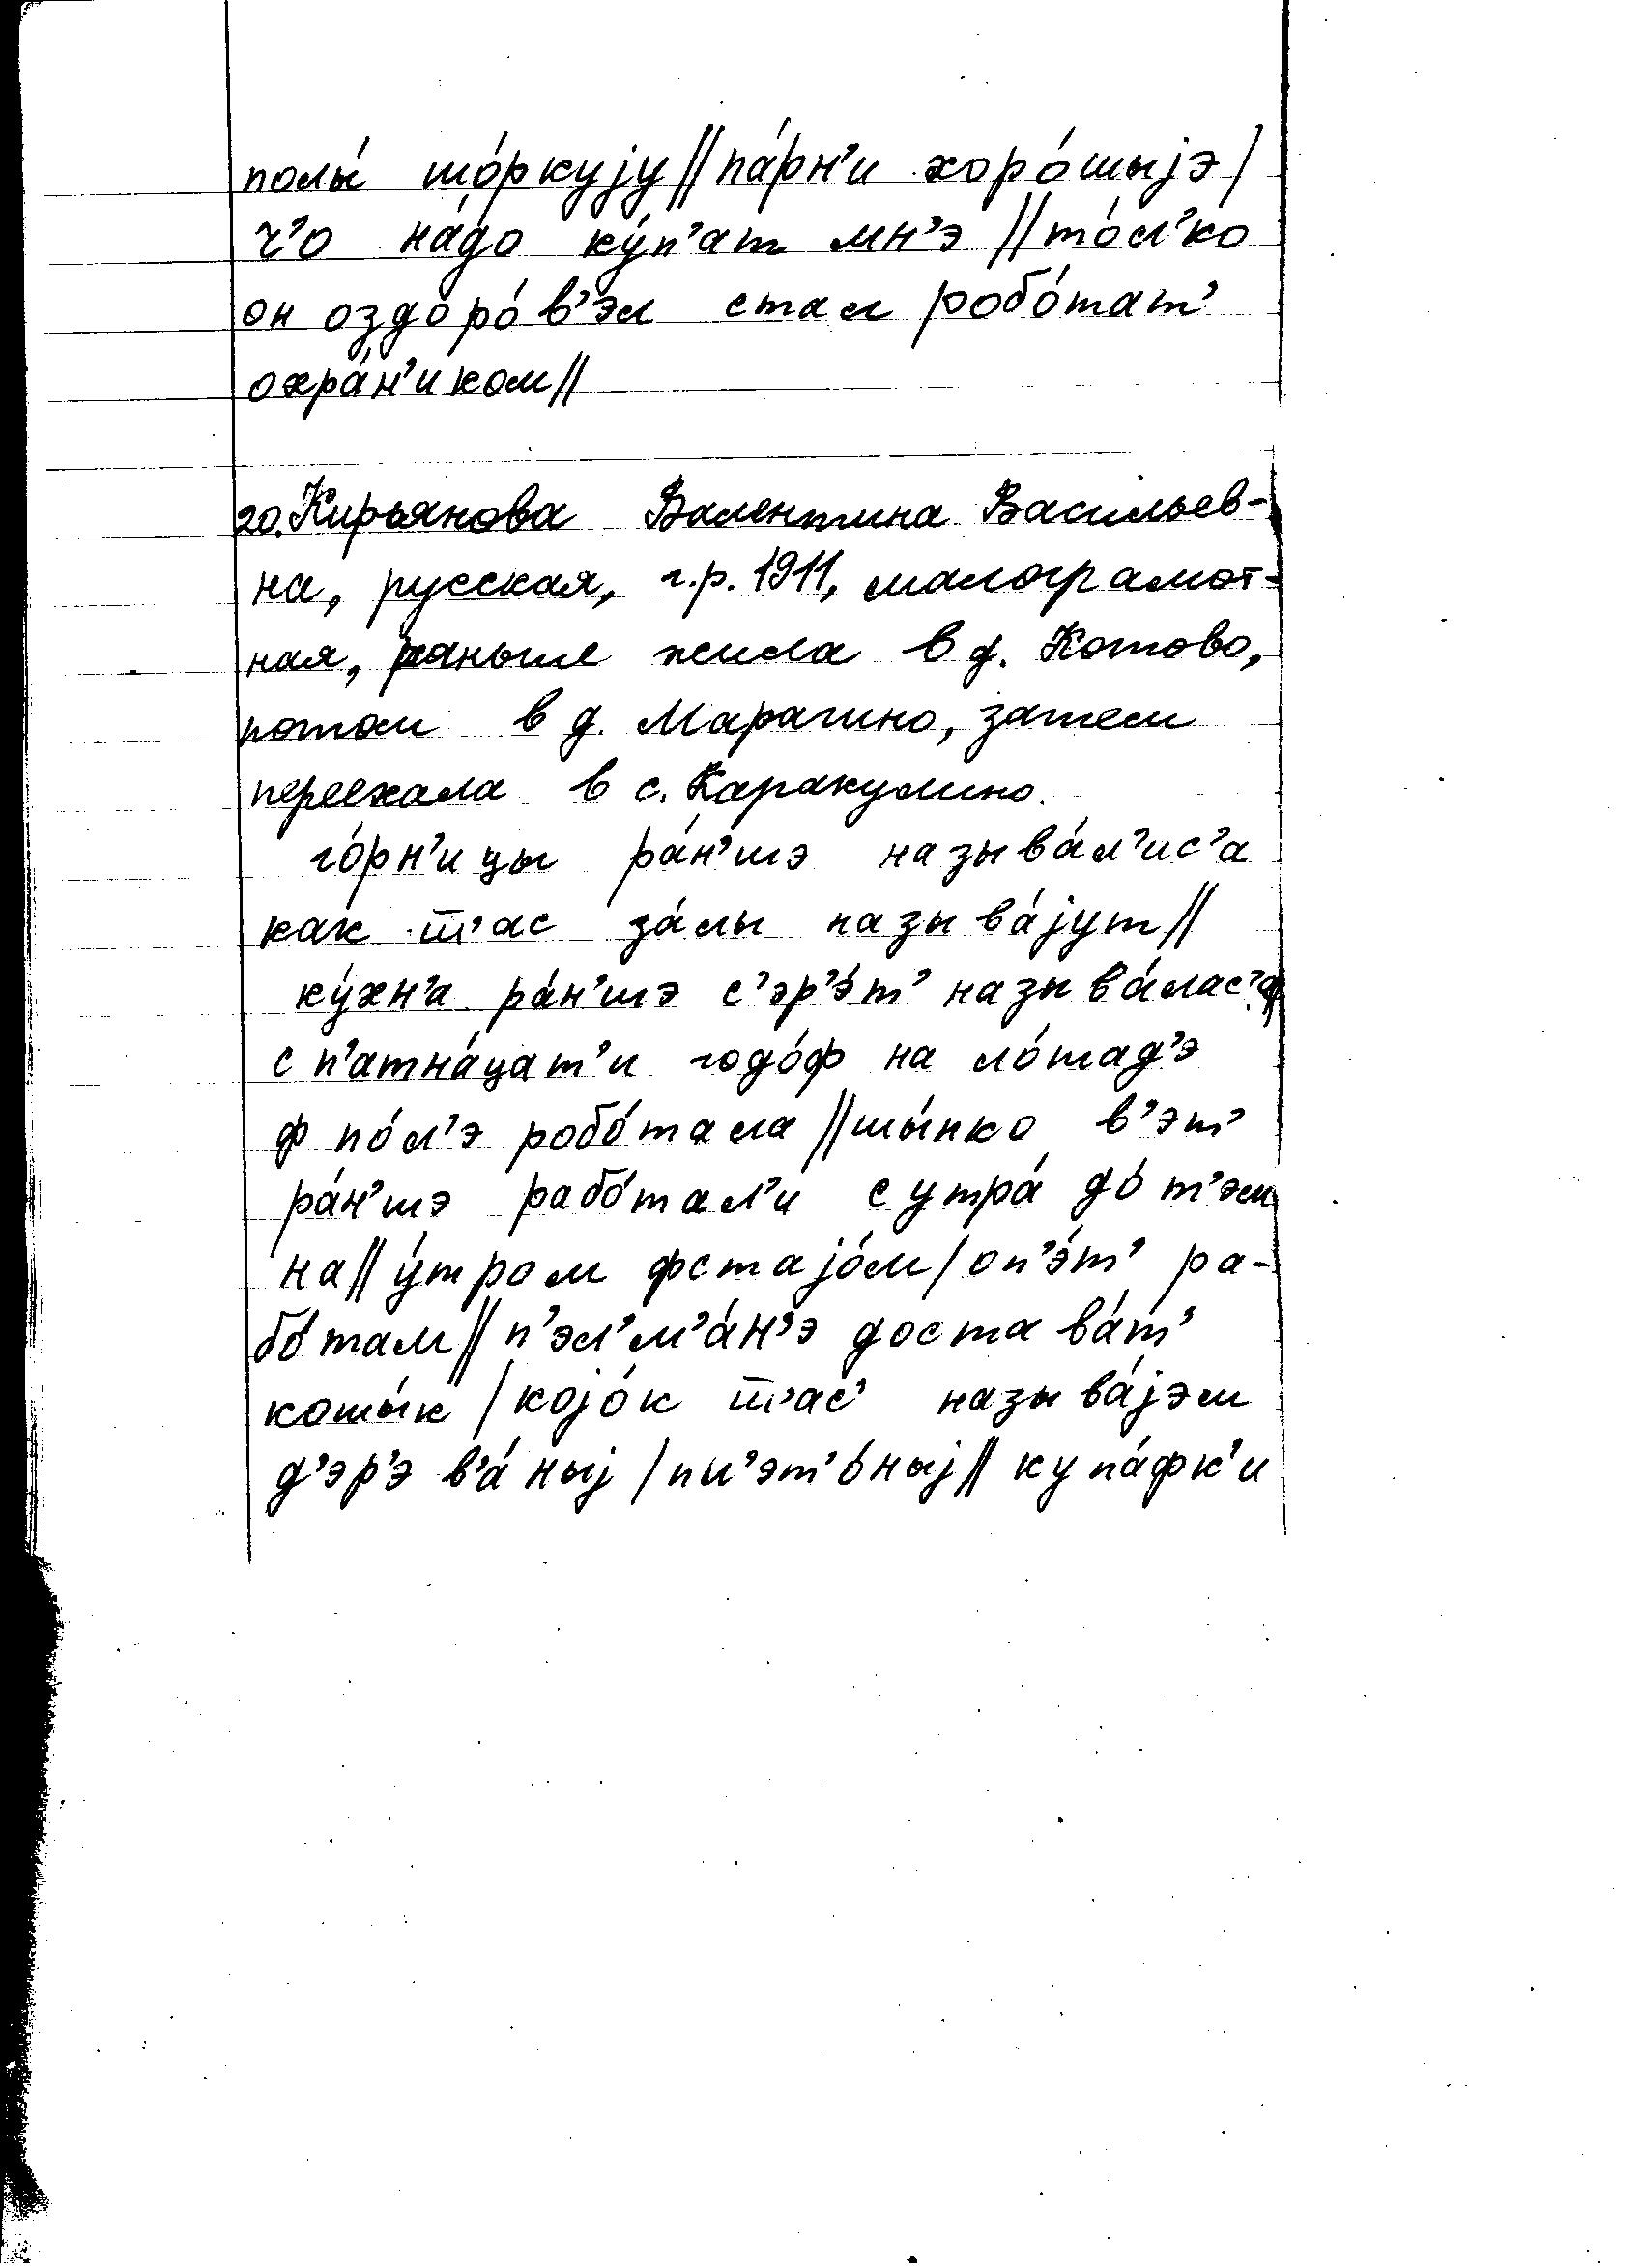 полы́ шо́ркујy // па́рн'и хоро́шыјэ /
ч'о на́до ку́п'ат мн'э // то́л'ко
он оздоро́в'эл стал робо́тат'
охра́н'иком //
20. Кирьянова Валентина Васильев-
на, русская, г.р. 1911, малограмот-
ная, раньше жила в д. Котово,
потом в д. Марагино, затем
переехала в с. Каракулино.
го́рн'ицы ра́н'шэ называ́л'ис'а
как т'ас за́лы называ́јут //
ку́хн'а ра́н'шэ с'эр'э́т' называ́лас'а //
с п'атна́цат'и годо́ф на ло́шад'э
ф по́л'э робо́тала // шы́пко в'эт'
ра́н'шэ рабо́тал'и с утра́ до́ т'эм
на // у́тром фстајо́м / оп'э́т' ра-
бо́там // п'эл'м'а́н'э достава́т'
кошы́к / којо́к т'ас' называ́јэм
д'эр'эв'а́ныј / пл'эт'о́ныј // купа́фк'и